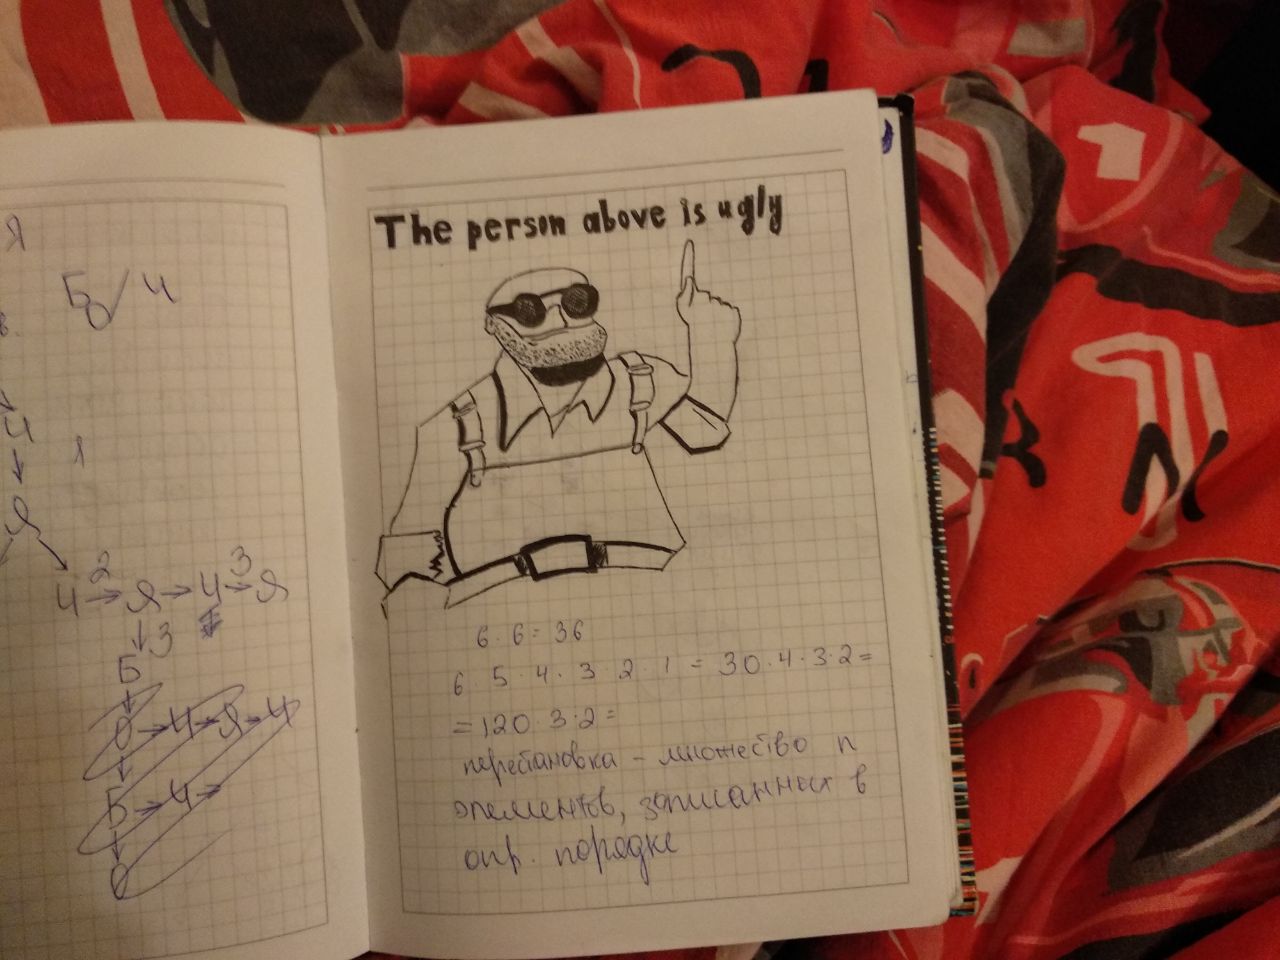 Я
Б / Ч
Ч
Я
Ч 2 → Я → Ч 3 → Я
↓ 3
Б
О → Ч → Я → Ч
Б → Ч →
О
The person above is ugly
6 · 6 = 36
6 5 · 4 · 3 · 2 · 1 = 30 · 4 · 3 · 2 =
= 120 · 3 · 2 =
перестановка – множество n
элементов, записанных в
опр. порядке